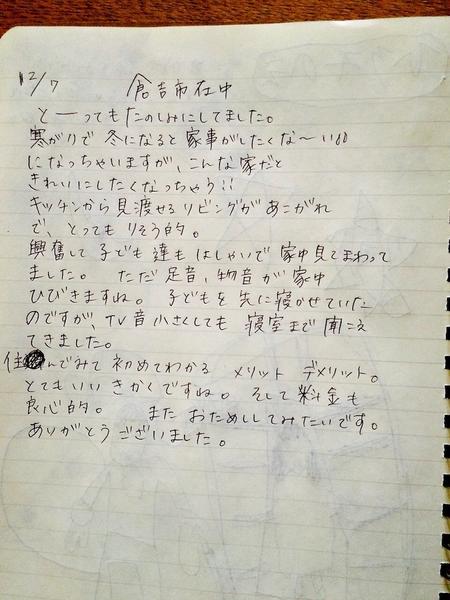 12/7 倉吉市在中
とーってもたのしみにしてました。
寒がりで 冬になると 家事がしたくな〜い
になっちゃいますが、こんな家だと
きれいにしたくなっちゃう!!
キッチンから 見渡せる リビングが あこがれ
で、とっても りそう的。
興奮して 子ども達も はしゃいで 家中見てまわって
ました。 ただ 足音、物音が 家中
ひびきますね。 子どもを 先に 寝かせていた
のですが、TV音 小さくしても 寝室まで 聞こえ
てきました。
住んでみて 初めてわかる メリット デメリット。
とてもいい きかくですね。 そして 料金も
良心的。 また おためししてみたいです。
ありがとうございました。